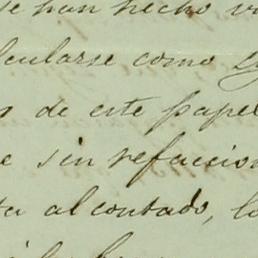 se han hecho
cularse como
de este papel
sin refaccion
ta al contado, lo